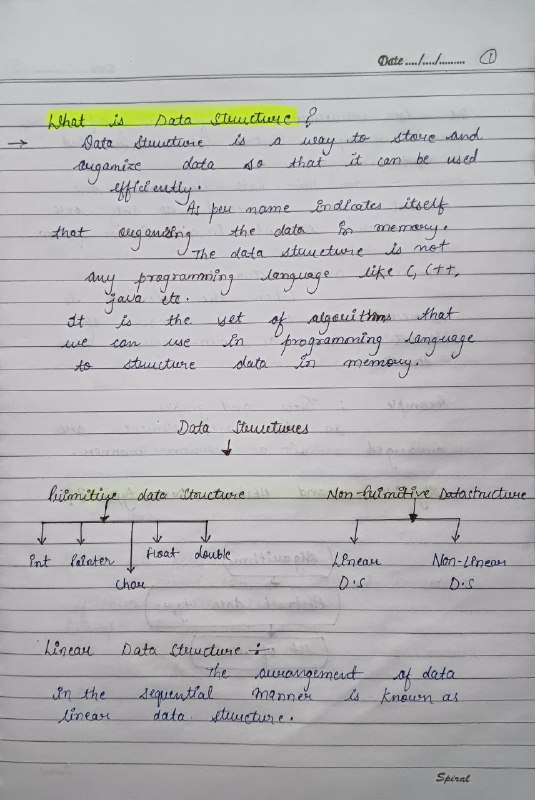 Date..../..../......... 1
What is Data Structure ?
→ Data Structure is a way to store and
organize data so that it can be used
efficiently.
As per name indicates itself
that organizing the data in memory.
The data structure is not
any programming language like C, C++,
java etc.
It is the set of algorithms that
we can use in programming language
to structure data in memory.
Data Structures
Primitive data Structure Non-Primitive Datastructure
int Pointer char Float double Linear D.S Non-Linear D.S
Linear Data Structure :-
The arrangement of data
in the sequential manner is known as
linear data structure.
Spiral